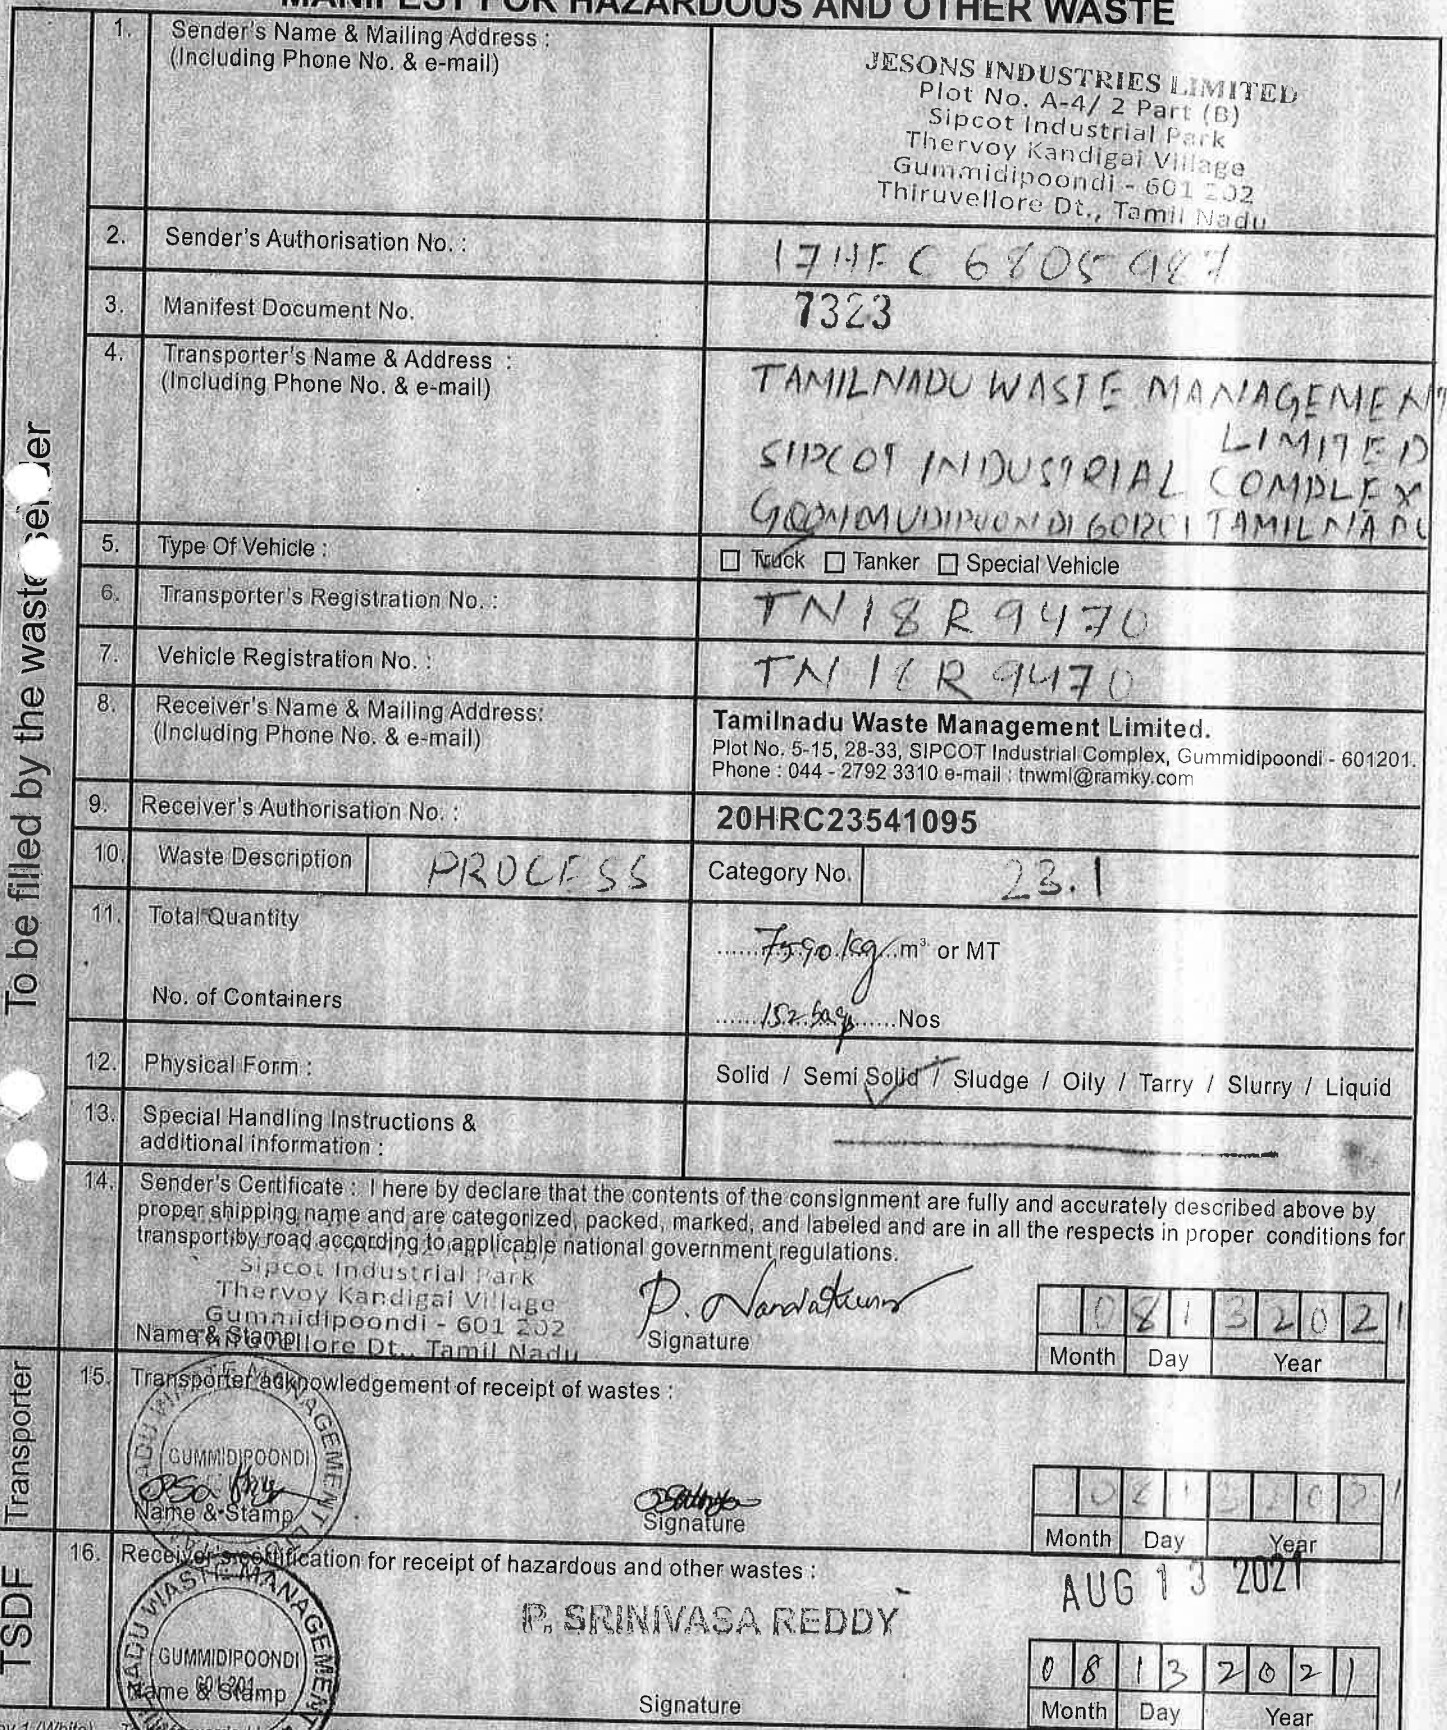 MANIFEST FOR HAZARDOUS AND OTHER WASTE
To be filled by the waste sender
1. Sender's Name & Mailing Address :
(Including Phone No. & e-mail)
JESONS INDUSTRIES LIMITED
Plot No. A-4/ 2 Part (B)
Sipcot Industrial Park
Thervoy Kandigai Village
Gummidipoondi - 601 202
Thiruvellore Dt., Tamil Nadu
2. Sender's Authorisation No. : 17HFC6805987
3. Manifest Document No. 7323
4. Transporter's Name & Address :
(Including Phone No. & e-mail)
TAMILNADU WASTE MANAGEMENT
LIMITED
SIPCOT INDUSTRIAL COMPLEX
TAMILNADU
5. Type Of Vehicle : Truck Tanker Special Vehicle
6. Transporter's Registration No. : TN18R9470
7. Vehicle Registration No. : TN18R9470
8. Receiver's Name & Mailing Address:
(Including Phone No. & e-mail)
Tamilnadu Waste Management Limited.
Plot No. 5-15, 28-33, SIPCOT Industrial Complex, Gummidipoondi - 601201.
Phone : 044 - 2792 3310 e-mail : tnwml@ramky.com
9. Receiver's Authorisation No. : 20HRC23541095
10. Waste Description PROCESS Category No. 23.1
11. Total Quantity ......7590 kg...m³ or MT
No. of Containers ......152 bags......Nos
12. Physical Form : Solid / Semi Solid / Sludge / Oily / Tarry / Slurry / Liquid
13. Special Handling Instructions &
additional information :
14. Sender's Certificate : I here by declare that the contents of the consignment are fully and accurately described above by
proper shipping name and are categorized, packed, marked, and labeled and are in all the respects in proper conditions for
transport by road according to applicable national government regulations.
Sipcot Industrial Park
Thervoy Kandigai Village
Gummidipoondi - 601 202
Thiruvellore Dt., Tamil Nadu
Name & Stamp
P. Nandakumar
Signature
08 13 2021
Month Day Year
Transporter
15. Transporter acknowledgement of receipt of wastes :
GUMMIDIPOONDI
Name & Stamp
Signature
08 13 2021
Month Day Year
TSDF
16. Receiver's certification for receipt of hazardous and other wastes :
AUG 13 2021
P. SRINIVASA REDDY
NADU WASTE MANAGEMENT
GUMMIDIPOONDI
601 201
Name & Stamp
Signature
08 13 2021
Month Day Year